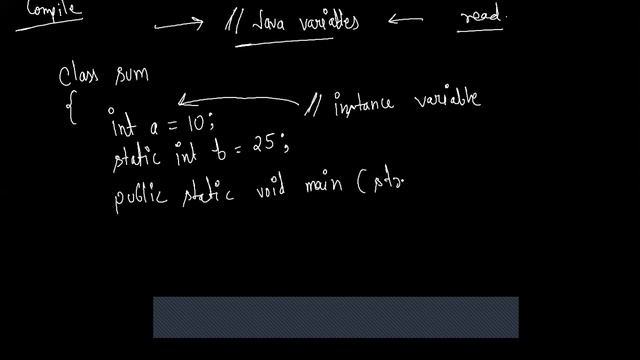 Compile
→ // Java variables ← read.
class sum
{
int a = 10; ← // instance variable
static int b = 25;
public static void main ( str